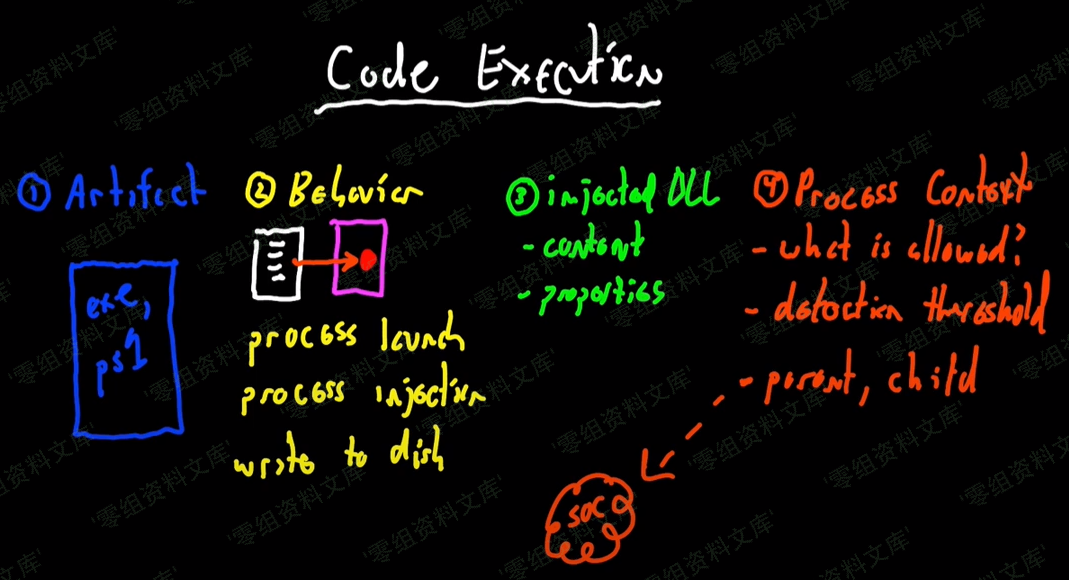 Code Execution
① Artifact
exe,
ps1
② Behavior
process launch
process injection
write to disk
③ injected DLL
- content
- properties
④ Process Context
- what is allowed?
- detection threshold
- parent, child
SOC
'零组资料文库'